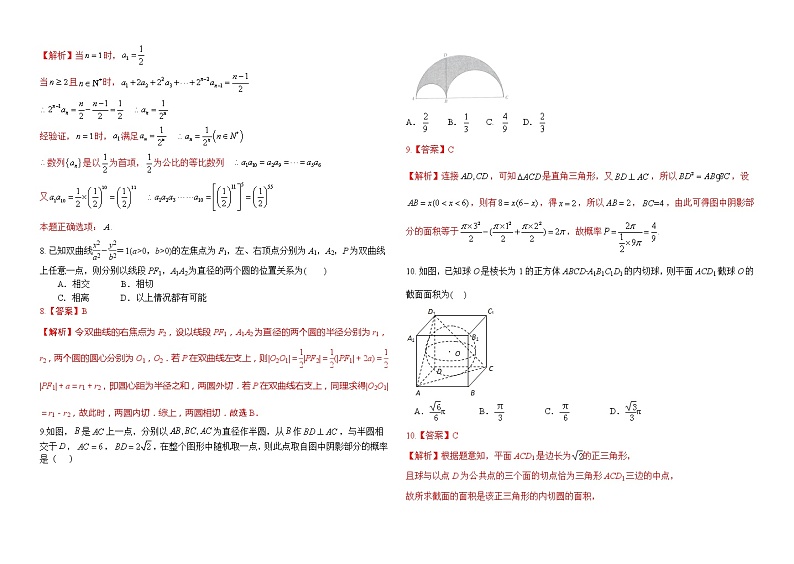 【解析】当n=1时，a₁=1/2
当n≥2且n∈N*时，a₁+2a₂+2²a₃+⋯+2ⁿ⁻²aₙ₊₁=(n-1)/2
∴2ⁿ⁻¹aₙ=n/2-(n-1)/2=1/2 ∴aₙ=1/2ⁿ
经验证，n=1时，a₁满足aₙ=1/2ⁿ ∴aₙ=1/2ⁿ(n∈N*)
∴数列{aₙ}是以1/2为首项，1/2为公比的等比数列 ∴a₁a₁₀=a₂a₉=⋯=a₅a₆
又a₁a₁₀=1/2×(1/2)¹⁰=(1/2)¹¹ ∴a₁a₂a₃⋯⋯a₁₀=[(1/2)¹¹]⁵=(1/2)⁵⁵
本题正确选项：A.
8.已知双曲线x²/a²-y²/b²=1(a>0，b>0)的左焦点为F₁，左、右顶点分别为A₁，A₂，P为双曲线
上任意一点，则分别以线段PF₁，A₁A₂为直径的两个圆的位置关系为(  )
A．相交 B．相切
C．相离 D．以上情况都有可能
8.【答案】B
【解析】令双曲线的右焦点为F₂，设以线段PF₁，A₁A₂为直径的两个圆的半径分别为r₁，
r₂，两个圆的圆心分别为O₁，O₂．若P在双曲线左支上，则|O₂O₁|=1/2|PF₂|=1/2(|PF₁|+2a)=1/2
|PF₁|+a=r₁+r₂，即圆心距为半径之和，两圆外切．若P在双曲线右支上，同理求得|O₂O₁|
=r₁-r₂，故此时，两圆内切．综上，两圆相切．故选B．
9.如图，B是AC上一点，分别以AB,BC,AC为直径作半圆，从B作BD⊥AC，与半圆相
交于D，AC=6，BD=2√2，在整个图形中随机取一点，则此点取自图中阴影部分的概率
是（  ）
A．2/9 B．1/3 C．4/9 D．2/3
9.【答案】C
【解析】连接AD,CD，可知△ACD是直角三角形，又BD⊥AC，所以BD²=ABgBC，设
AB=x(0<x<6)，则有8=x(6-x)，得x=2，所以AB=2，BC=4，由此可得图中阴影部
分的面积等于π×3²/2-(π×1²/2+π×2²/2)=2π，故概率P=2π/(1/2×9π)=4/9.
10．如图，已知球O是棱长为1的正方体ABCD-A₁B₁C₁D₁的内切球，则平面ACD₁截球O的
截面面积为(  )
D₁ C₁
A₁ B₁
O
D C
A B
A．√6/6π B．π/3 C．π/6 D．√3/3π
10.【答案】C
【解析】根据题意知，平面ACD₁是边长为√2的正三角形，
且球与以点D为公共点的三个面的切点恰为三角形ACD₁三边的中点，
故所求截面的面积是该正三角形的内切圆的面积，